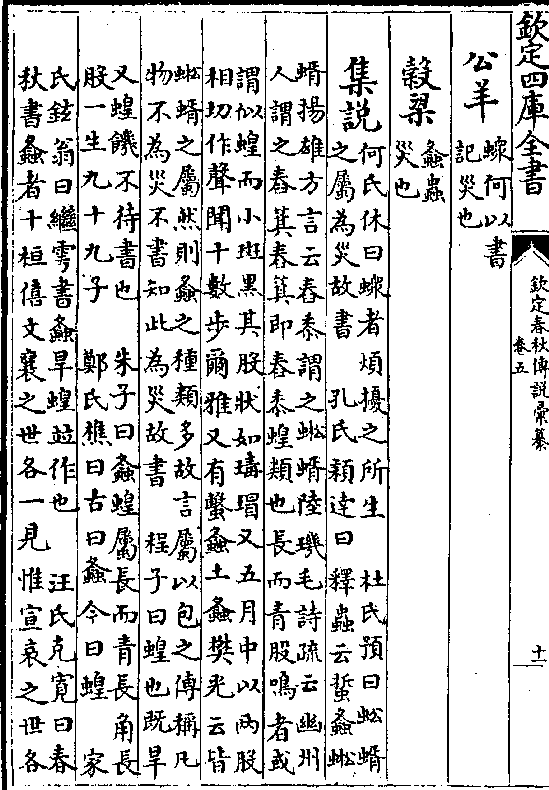 欽定四庫全書
欽定春秋傳說彙纂
卷五
十一
公羊
𧑄何以書
記災也
榖梁
螽蟲
災也
集說
何氏休曰𧑄者煩擾之所生 杜氏預曰蚣蝑
之屬為災故書 孔氏穎達曰釋蟲云蜤螽蚣
蝑揚雄方言云舂黍謂之蚣蝑陸璣毛詩疏云幽州
人謂之舂箕舂箕即舂黍蝗類也長而青股鳴者或
謂似蝗而小斑黑其股狀如瑇瑁又五月中以兩股
相切作聲聞十數步爾雅又有蟿螽土螽樊光云皆
蚣蝑之屬然則螽之種類多故言屬以包之傳稱凡
物不為災不書知此為災故書 程子曰蝗也既旱
又蝗饑不待書也 朱子曰螽蝗屬長而青長角長
股一生九十九子 鄭氏樵曰古曰螽今曰蝗 家
氏鉉翁曰繼雩書螽旱蝗竝作也 汪氏克寬曰春
秋書螽者十桓僖文襄之世各一見惟宣哀之世各